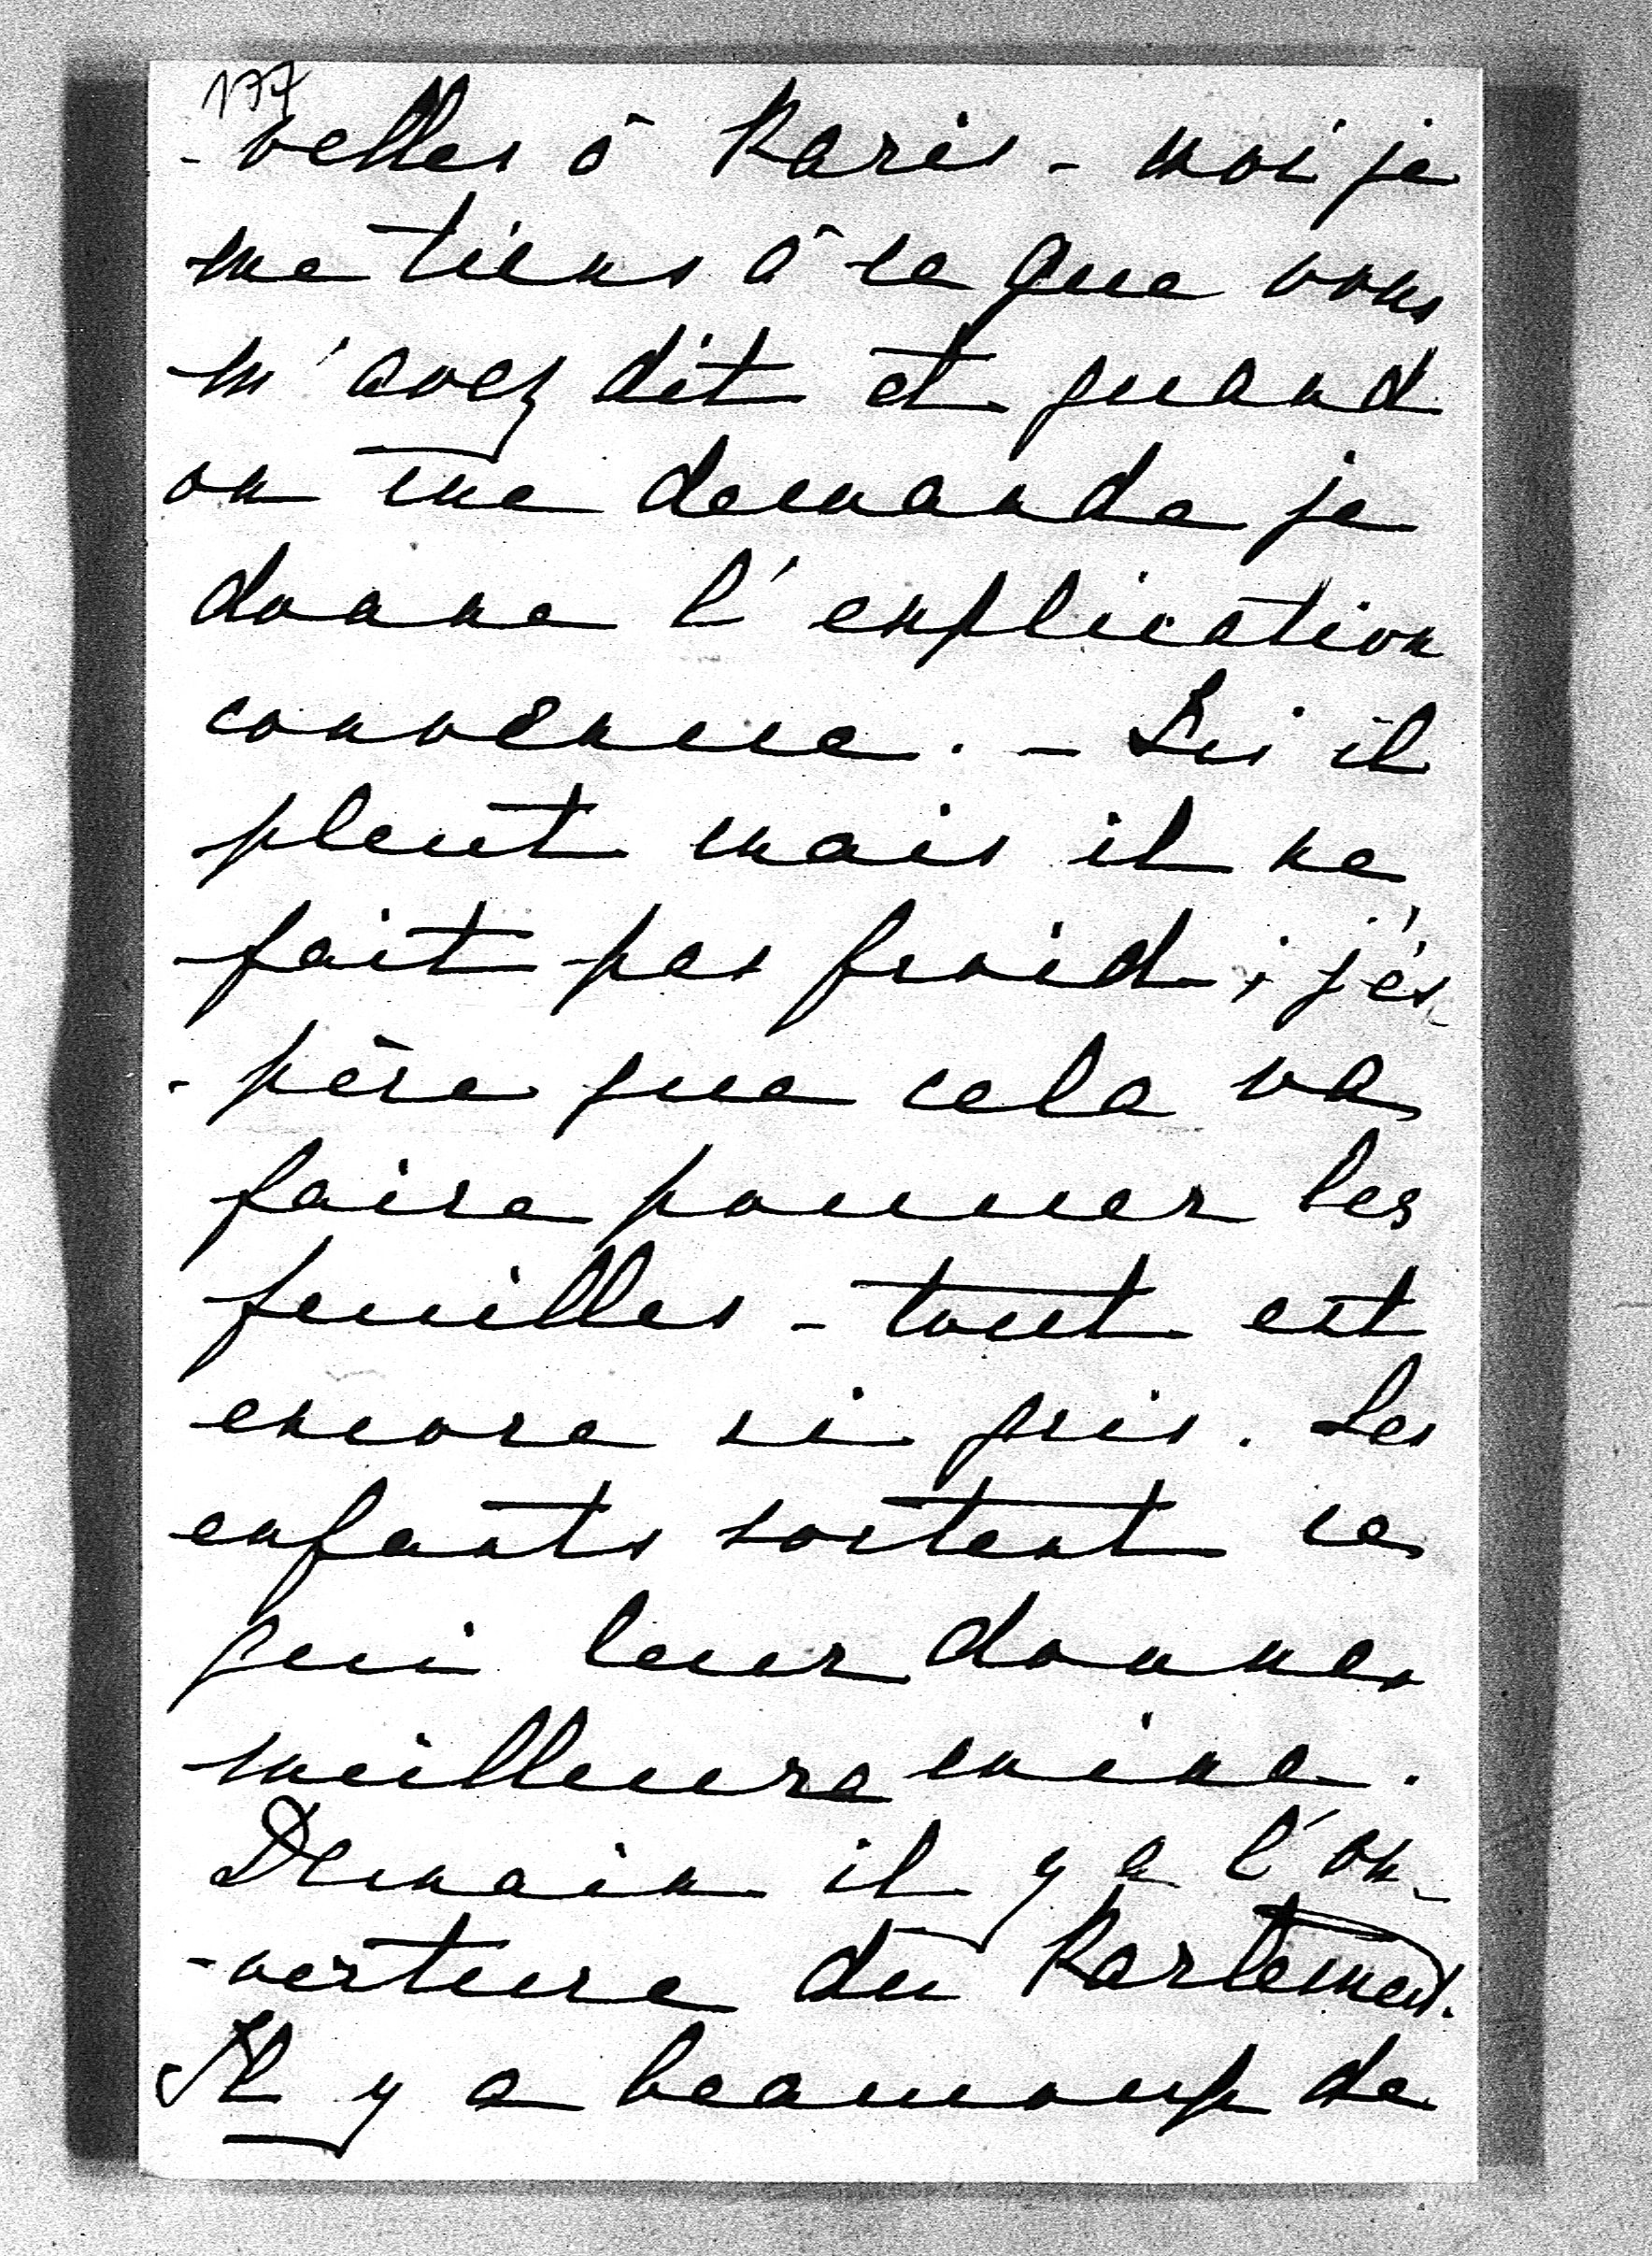 177
-velles à Paris - moi je
me tiens à ce que vous
m'avez dit et quand
on me demande je
donne l'explication
convenue. - Ici il
pleut mais il ne
fait pas froid ; j'es-
-père que cela va
faire pousser les
feuilles - tout est
encore si gris. Les
enfants sortent ce
qui leur donne
meilleure mine.
Demain il y a l'ou-
-verture du Parlement.
Il y a beaucoup de